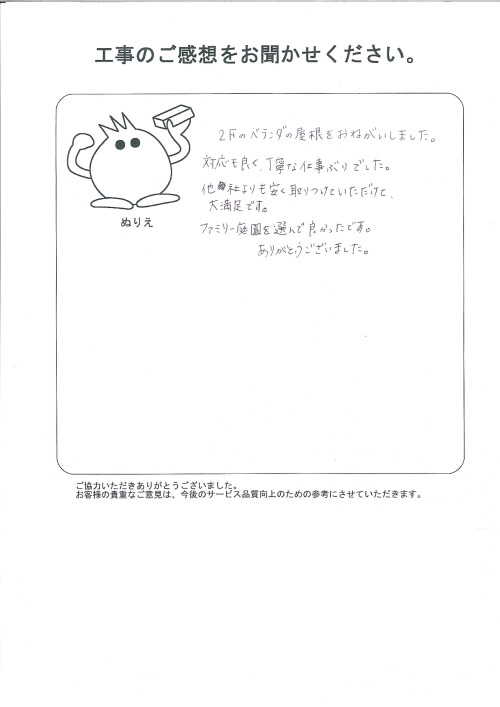 工事のご感想をお聞かせください。
2Fのベランダの屋根をおねがいしました。
対応も良く、丁寧な仕事ぶりでした。
他社よりも安く取りつけていただけて、
大満足です。
ファミリー庭園を選んで良かったです。
ありがとうございました。
ぬりえ
ご協力いただきありがとうございました。
お客様の貴重なご意見は、今後のサービス品質向上のための参考にさせていただきます。